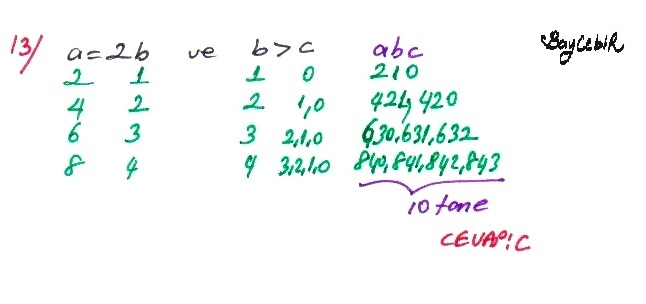 13/ a=2b ve b>c abc BayCebiR
2 1 1 0 210
4 2 2 1,0 421, 420
6 3 3 2,1,0 630,631,632
8 4 4 3,2,1,0 840,841,842,843
10 tane
CEVAP:C